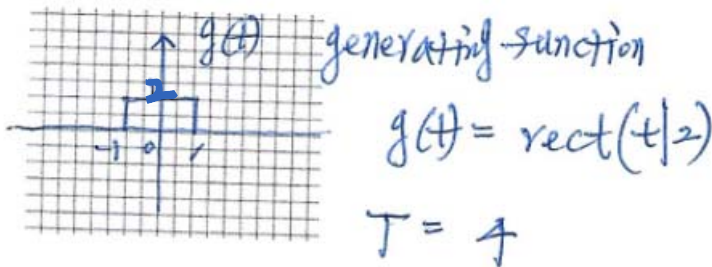 g(t) generating function
1
-1 0 1
g(t) = rect(t/2)
T = 4